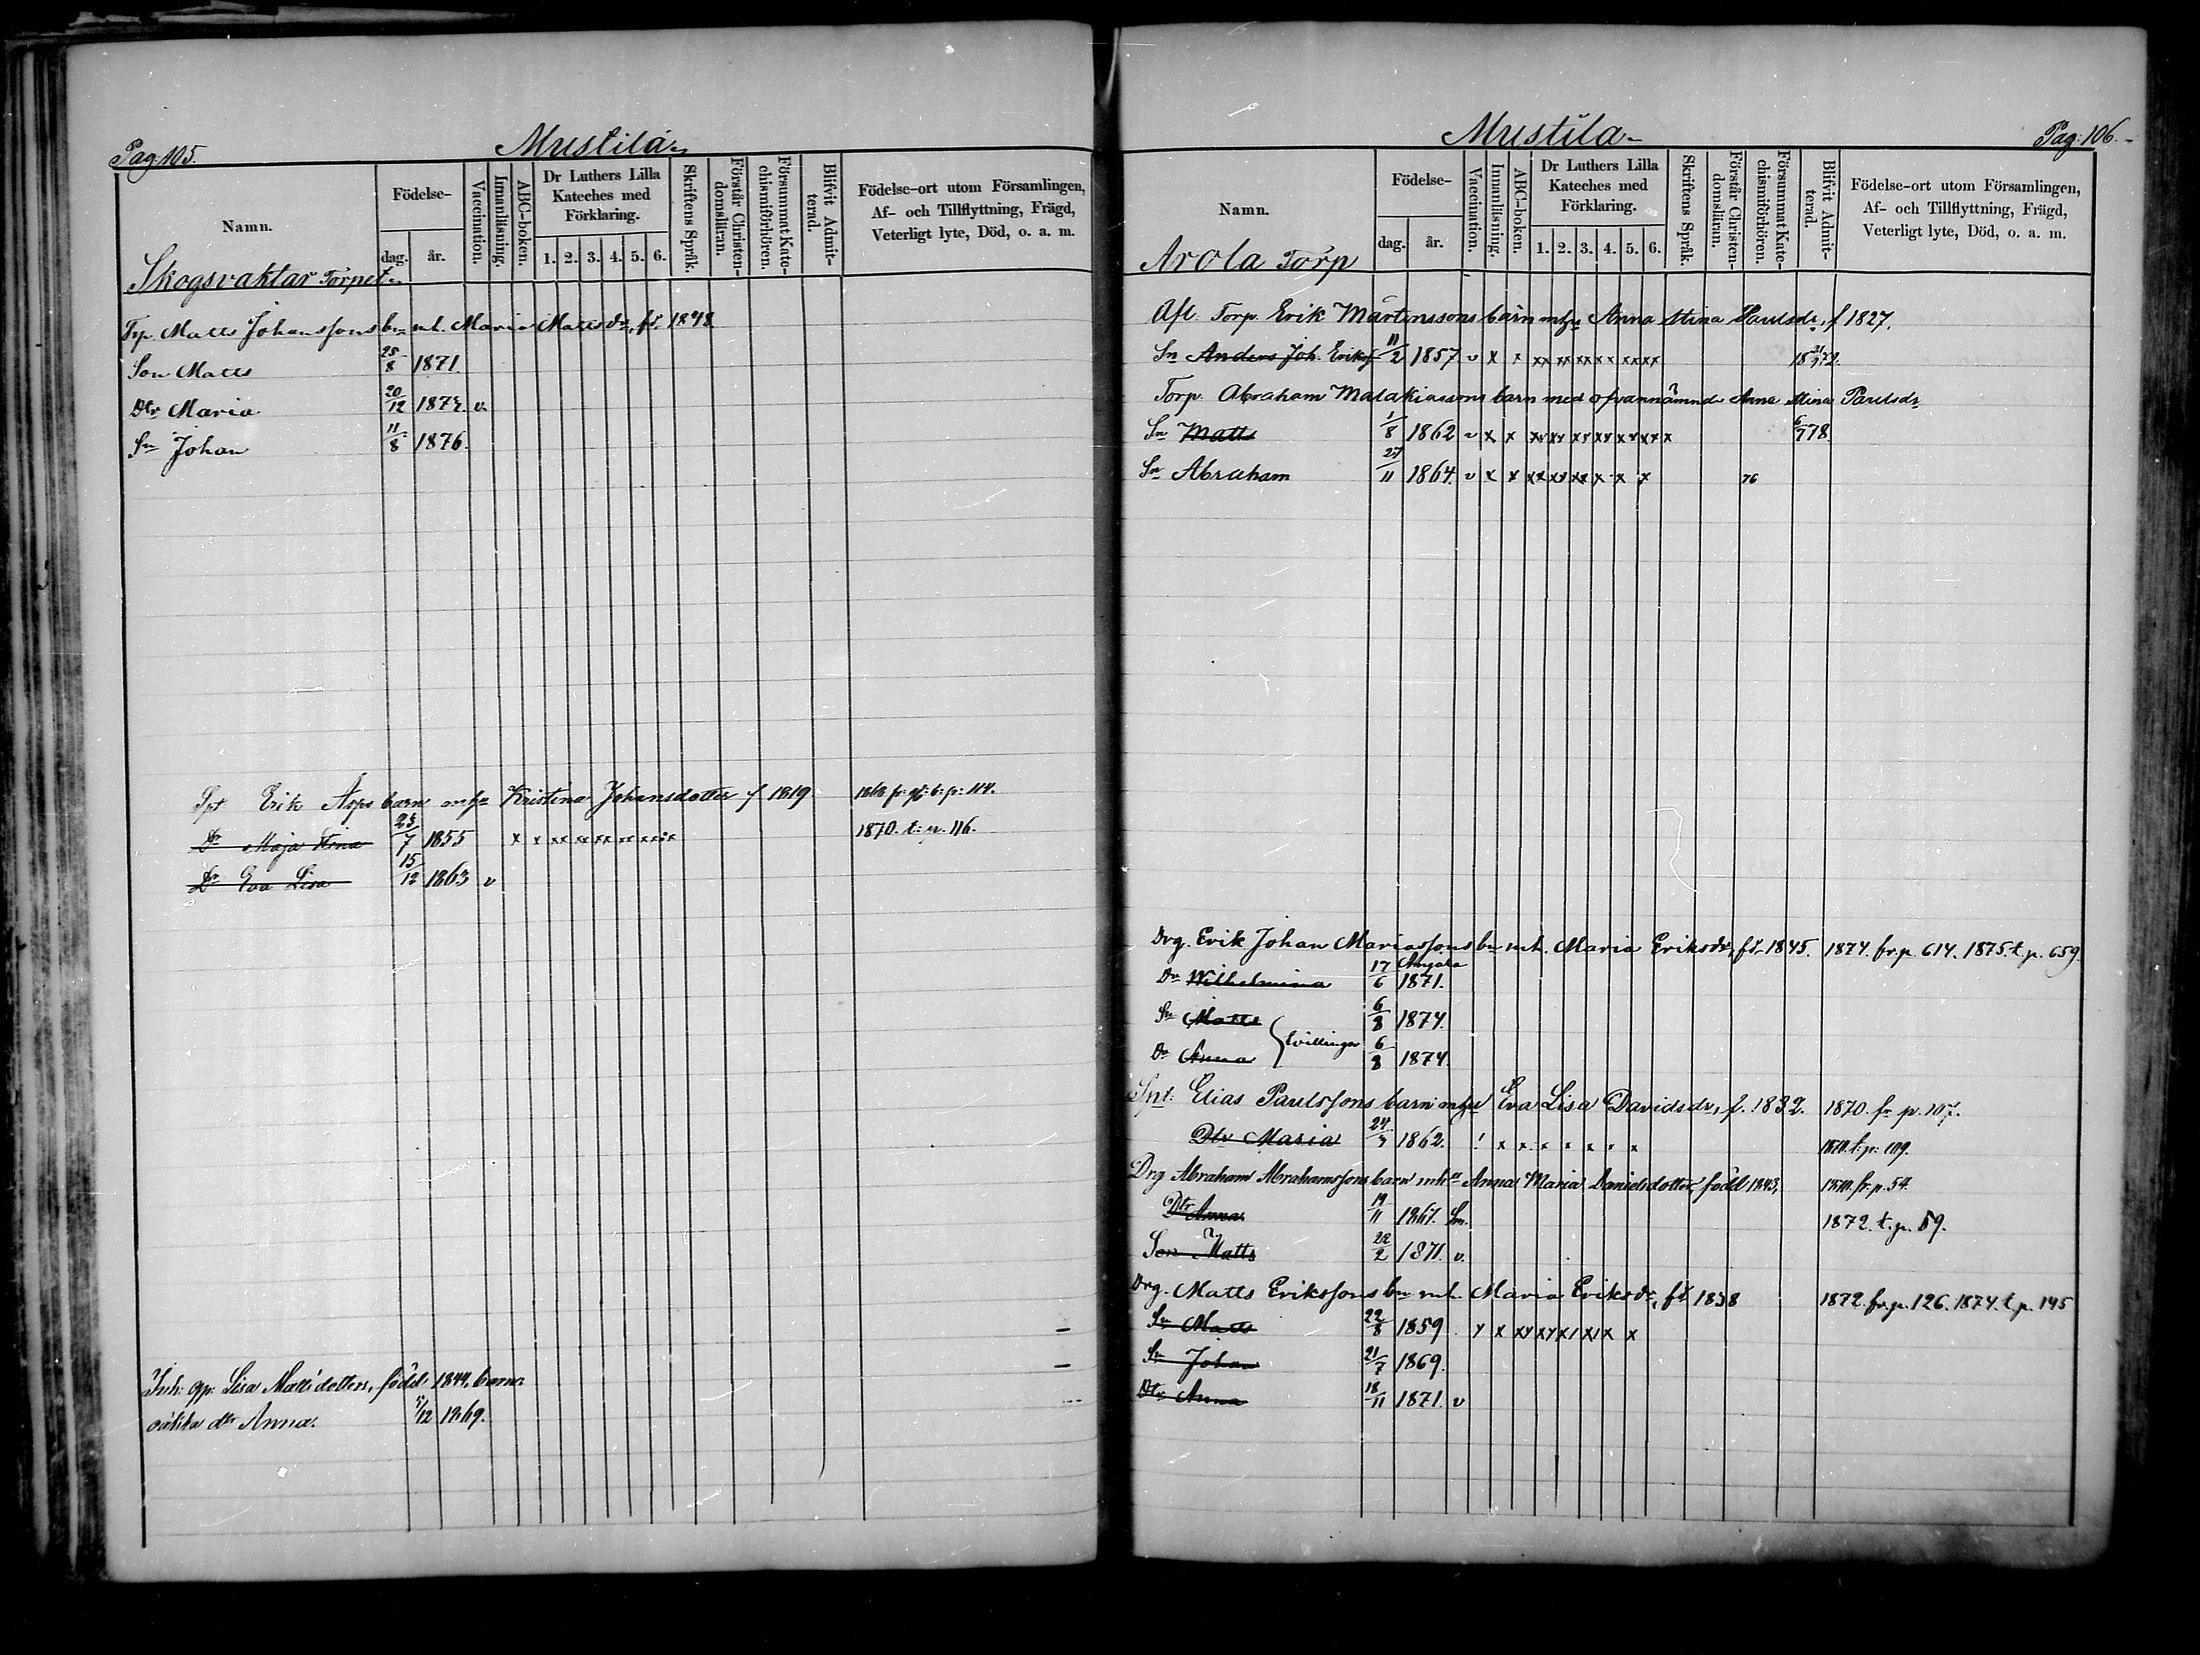 Pag: 105.
Mustila
Namn.
Födelse-
dag.
år.
Vaccination.
Innanläsning.
ABC-boken.
Dr Luthers Lilla
Kateches med
Förklaring.
1. 2. 3. 4. 5. 6.
Skriftens Språk.
Förstår Christen-
domsläran.
Försummat Kate-
chismiförhören.
Blifvit Admit-
terad.
Födelse-ort utom Församlingen,
Af- och Tillflyttning, Frägd,
Veterligt lyte, Död, o. a. m.
Skogsvaktar Torpet
Trp. Matts Johanssons bn m. h. Maria Mattsdr, fd. 1848
Son Matts 25/8 1871.
Dtr Maria 20/12 1872. v.
Sn Johan 11/8 1876.
Spt Erik Asps barn m hu Kristina Johansdotter f 1819 1868 fr. gl. b. p: 114.
Dr Maja Stina 23/7 1855 x x xx xx xx xx xx xx 1870. t. p. 116.
Dr Eva Lisa 15/12 1863 v
Inh. qp. Lisa Mattsdotters, född 1844, barn:
oäkta dtr Anna. 5/12 1869.
Mustila
Pag: 106.
Namn.
Födelse-
dag. år.
Vaccination.
Innanläsning.
ABC-boken.
Dr Luthers Lilla
Kateches med
Förklaring.
1. 2. 3. 4. 5. 6.
Skriftens Språk.
Förstår Christen-
domsläran.
Försummat Kate-
chismiförhören.
Blifvit Admit-
terad.
Födelse-ort utom Församlingen,
Af- och Tillflyttning, Frägd,
Veterligt lyte, Död, o. a. m.
Arola Torp
Afl. Torp. Erik Mårtenssons barn m hu Anna Stina Paulsdr, f 1827.
Sn Anders Joh. Eriksf 11/2 1857 v x x xx xx xx x x xx xx
Torp. Abraham Malakiassons barn med ofvannämnde Anna Stina Paulsdr
Sn Matts 1/8 1862 v x x xx xx xx xx xx xx x 6/7 78.
Sn Abraham 27/11 1864. v x x xx xx xx x x x 76
Drg. Erik Johan Mariassons bn m. h. Maria Eriksdr, fd. 1845. 1874. fr. p. 614. 1875. t. p. 659.
Dr Wilhelmina 17/6 Anjala 1871.
Sn Matts 6/8 1874.
tvillingar
Dr Anna 6/8 1874.
Spt: Elias Paulssons barn m hu Eva Lisa Davidsdr, f. 1832. 1870. fr p. 107.
Dtr Maria 24/3 1862. x x x x x x x 1870. t. p. 109.
Drg Abraham Abrahamssons barn m hu Anna Maria Danielsdotter, född 1843, 1870. fr. p. 54.
Dtr Anna 19/11 1867. 1872. t. p. 59.
Son Matts 22/2 1871. v.
Drg. Matts Erikssons bn m. h. Maria Eriksdr, fd 1838 1872. fr. p. 126. 1874. t. p. 145
Sn Matts 22/8 1859 v x xx xx xx xx x
Sn Johan 21/7 1869.
Dtr Anna 18/11 1871. v